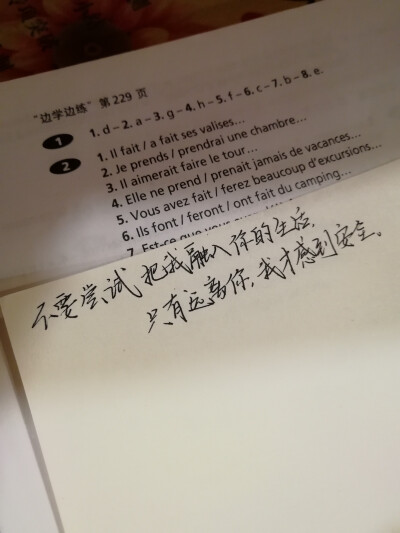 “边学边练” 第 229 页
1 1. d – 2. a – 3. g – 4. h – 5. f – 6. c – 7. b – 8. e.
2 1. Il fait / a fait ses valises…
2. Je prends / prendrai une chambre…
3. Il aimerait faire le tour…
4. Elle ne prend / prenait jamais de vacances…
5. Vous avez fait / ferez beaucoup d’excursions…
6. Ils font / feront / ont fait du camping…
7. Est-ce que vous
不要尝试把我融入你的生活，
只有远离你，我才感到安全。